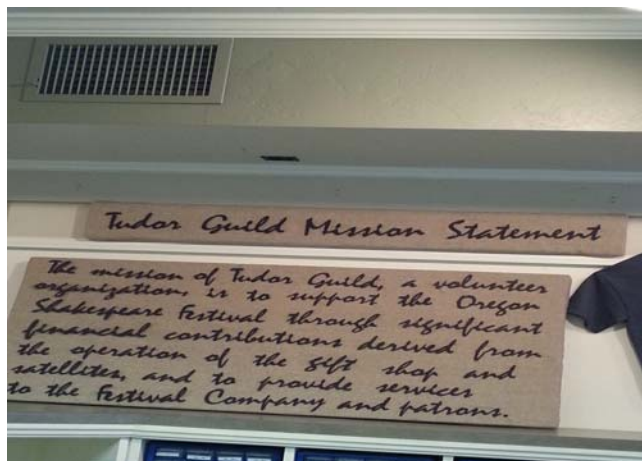 Tudor Guild Mission Statement
The mission of Tudor Guild, a volunteer
organization, is to support the Oregon
Shakespeare Festival through significant
financial contributions derived from
the operation of the gift shop and
satellites, and to provide services
to the Festival Company and patrons.